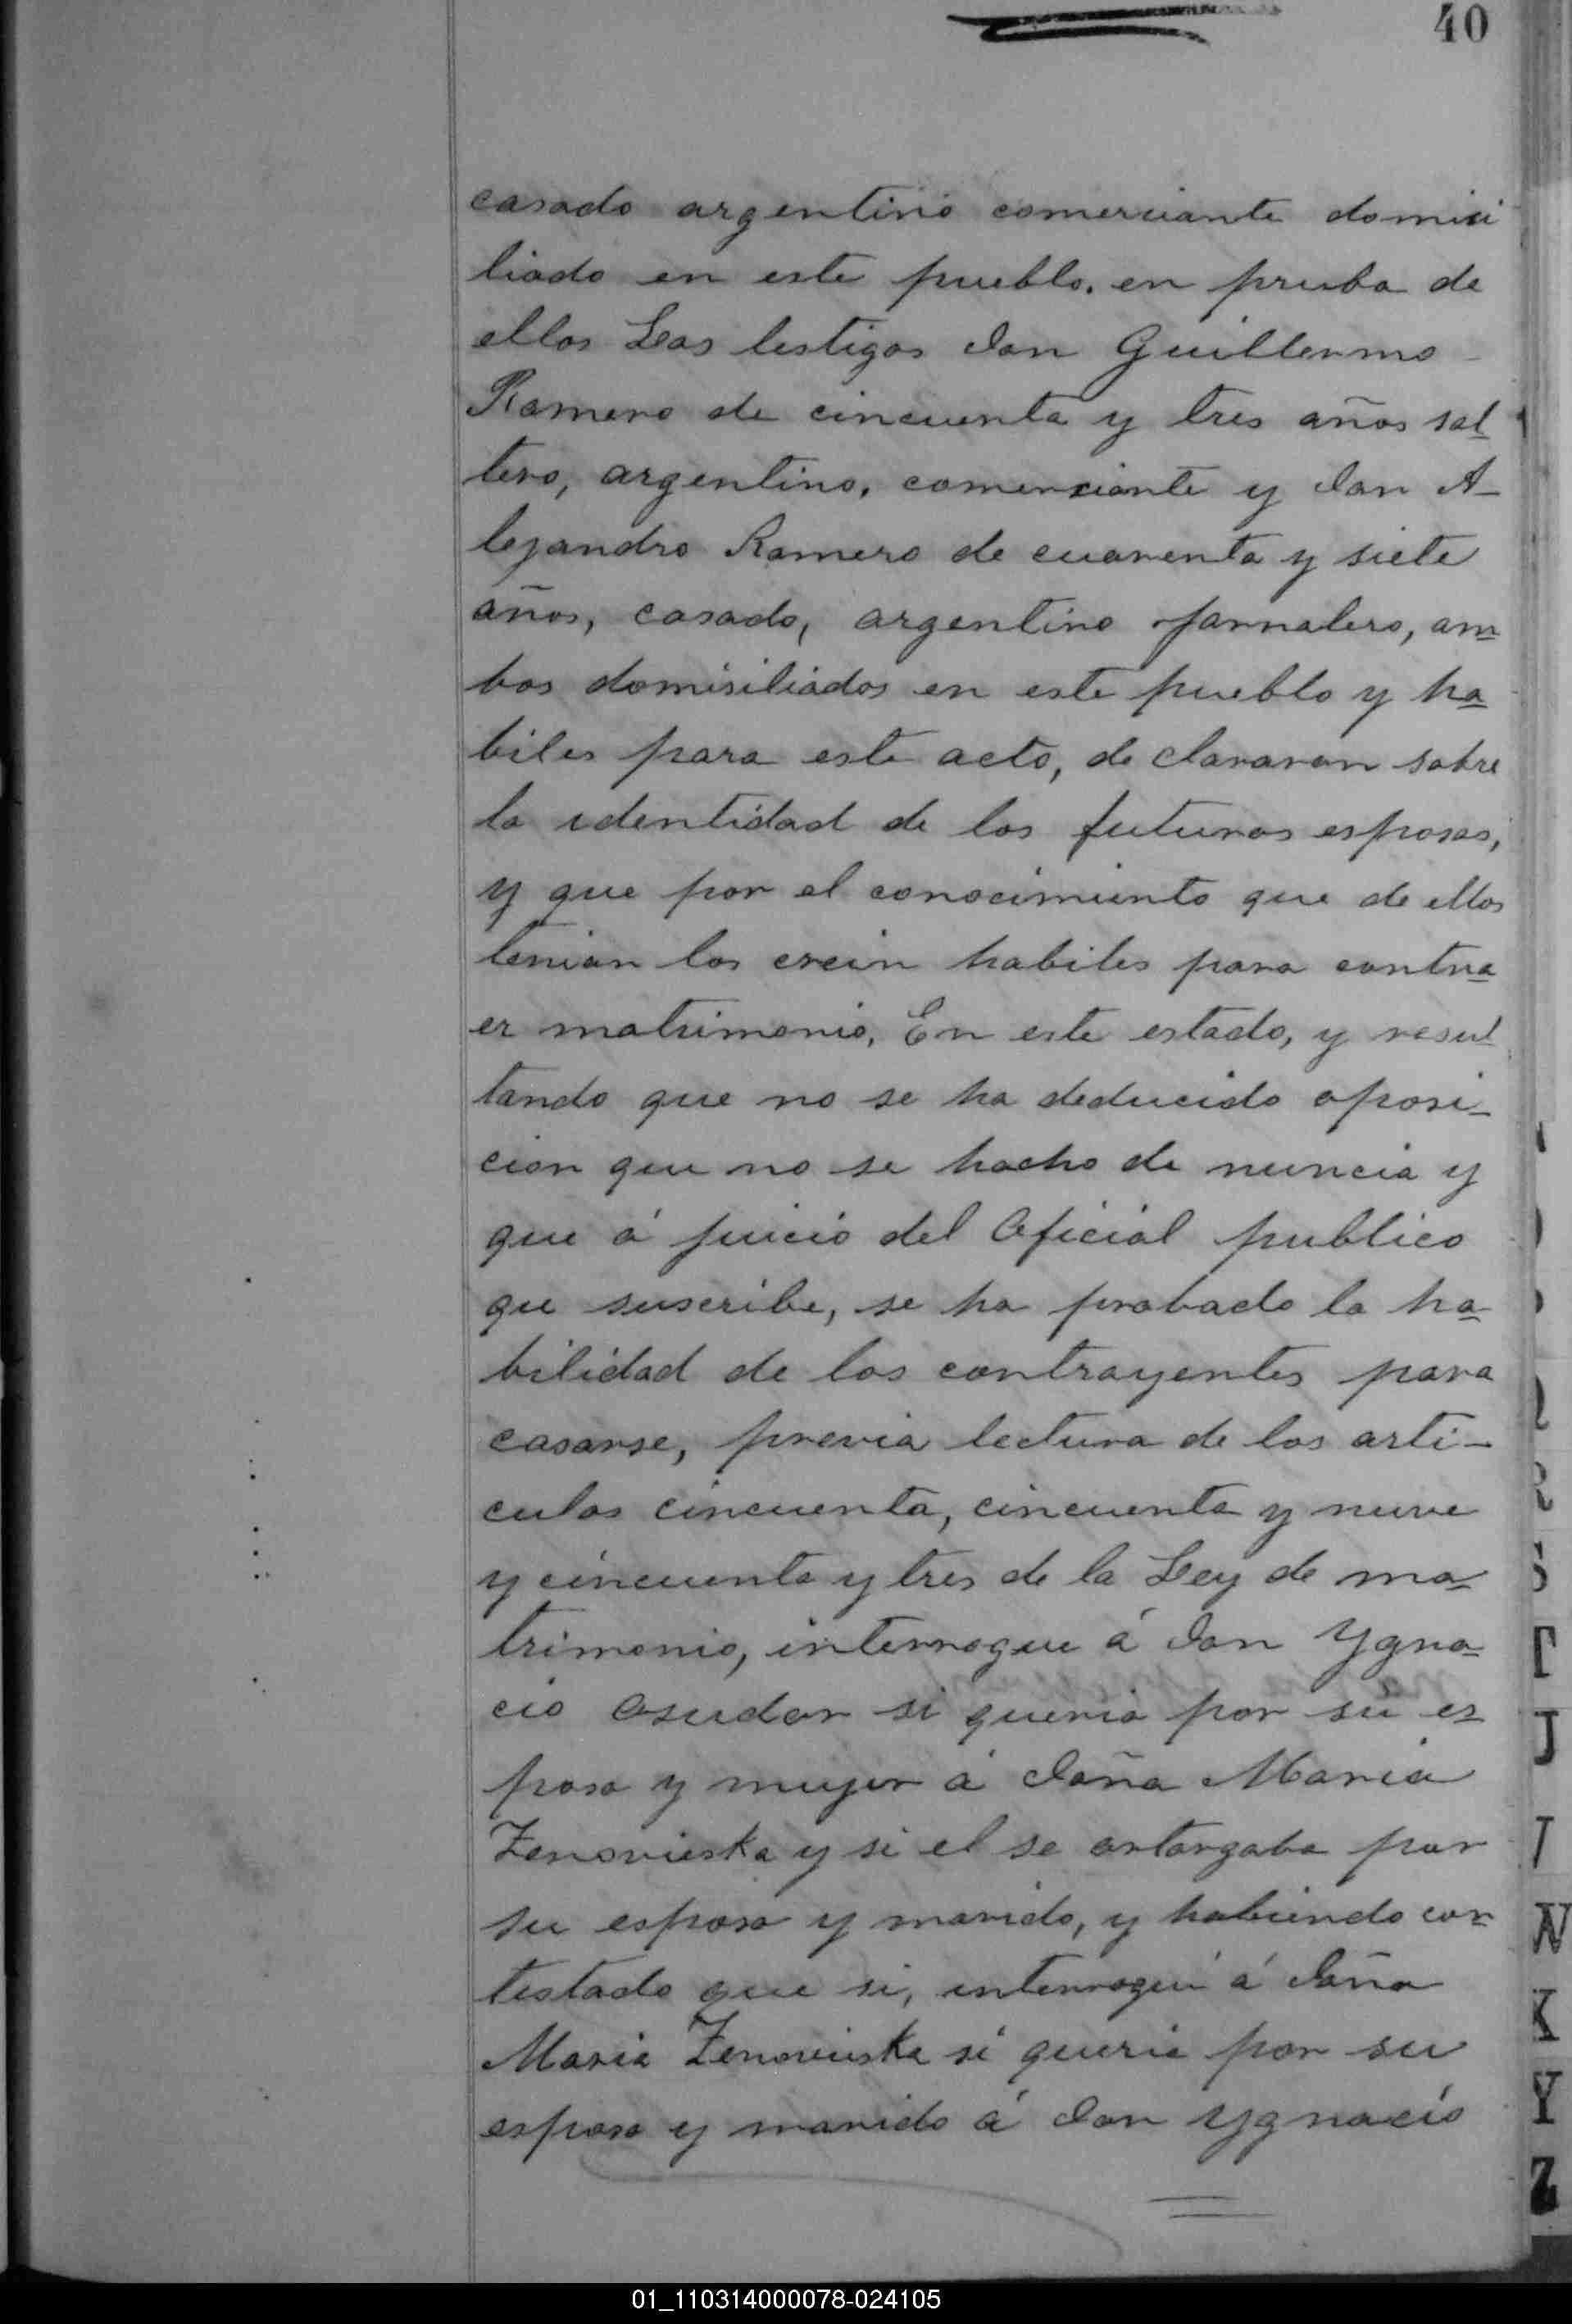 40
casado argentino comerciante domici
liado en este pueblo. en prueba de
ellos Los testigos don Guillermo
Romero de cincuenta y tres años sol
tero, argentino, comerciante y don A-
lejandro Romero de cuarenta y siete
años, casado, argentino jornalero, am
bos domisiliados en este pueblo y ha
biles para este acto, de clararon sobre
la identidad de los futuros esposos,
y que por el conocimiento que de ellos
tenian los crein habiles para contra
er matrimonio, En este estado, y resul
tando que no se ha deducido oposi-
cion que no se hacho de nuncia y
que á juicio del Oficial publico
que suscribe, se ha probado la ha
bilidad de los contrayentes para
casarse, previa lectura de los arti-
culos cincuenta, cincuenta y nueve
y cincuenta y tres de la Ley de ma
trimonio, interrogue á don Ygna-
cio Osudar si queria por su es
posa y mujer á doña Maria
Zenovieska y si el se ortorgaba por
su esposo y marido, y habiendo con
testado que si, interrogui á doña
Maria Zenovieska si queria por su
esposo y marido á don Ygnacio
R
S
T
J
T
N
K
Y
Z
01_110314000078-024105